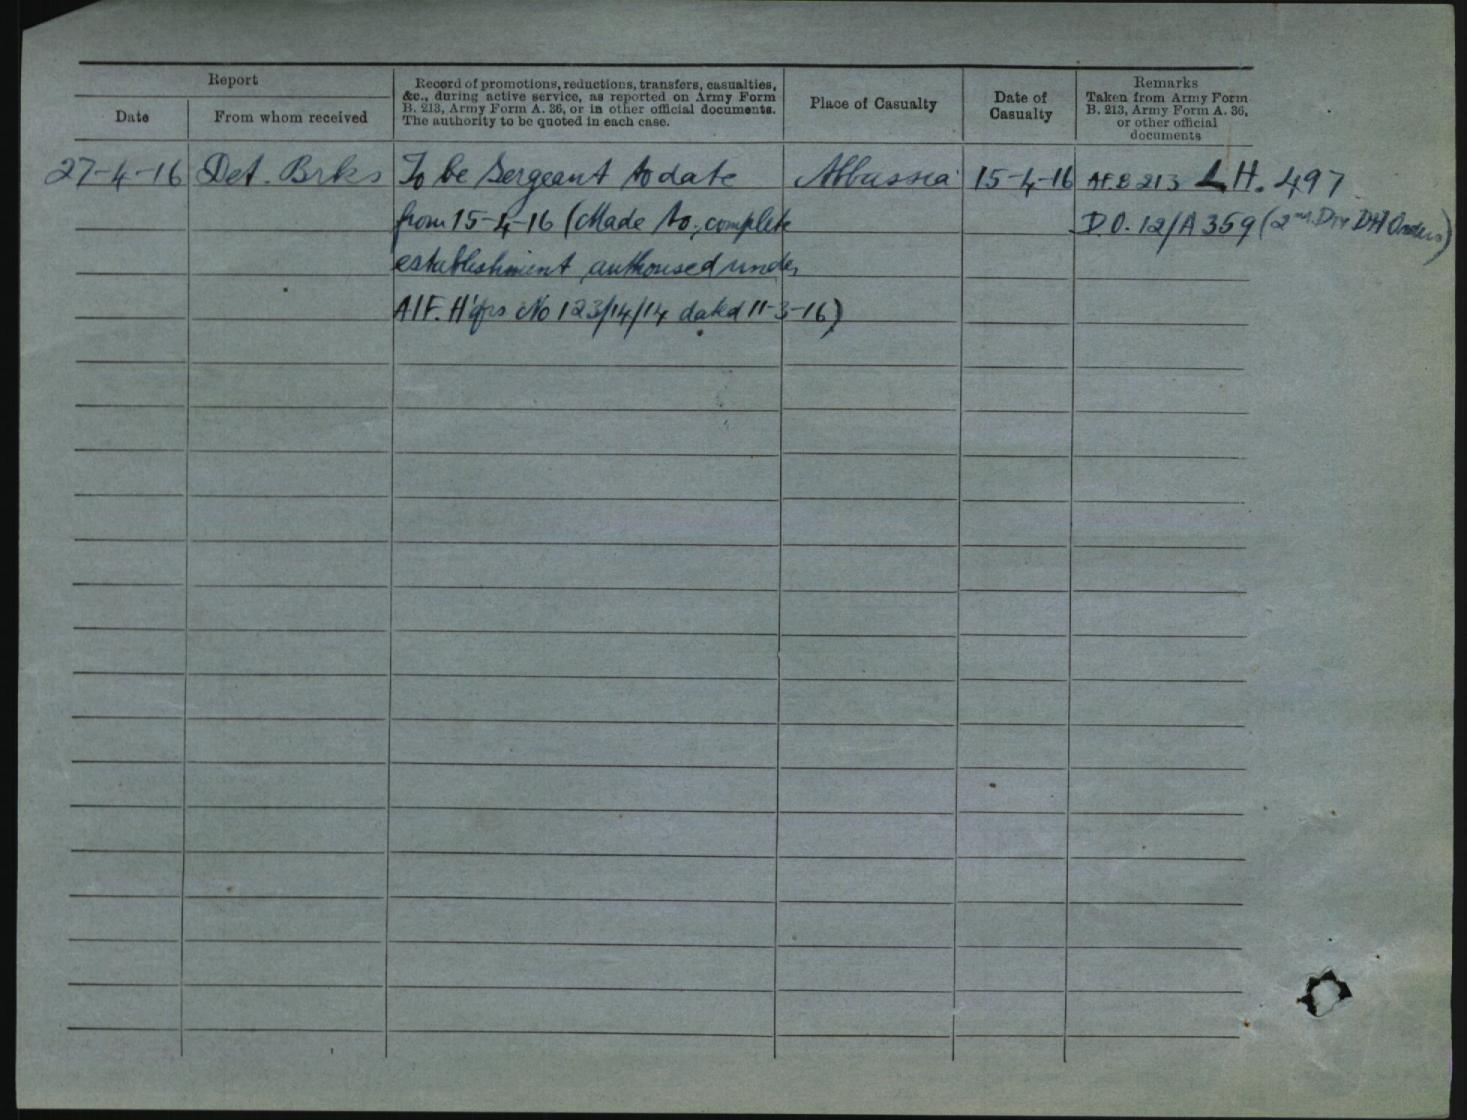 Report
Date
From whom received
Record of promotions, reductions, transfers, casualties,
&c., during active service, as reported on Army Form
B. 213, Army Form A. 36, or in other official documents.
The authority to be quoted in each case.
Place of Casualty
Date of
Casualty
Remarks
Taken from Army Form
B. 213, Army Form A. 36,
or other official
documents
27-4-16 Det. Brks To be Sergeant to date Abbassia 15-4-16 AF.B 213 L.H. 497
from 15-4-16 (Made to complete D.O. 12/A 359 (2nd Div Orders)
establishment authorised under
AIF. H'qrs No 123/14/14 dated 11-3-16)